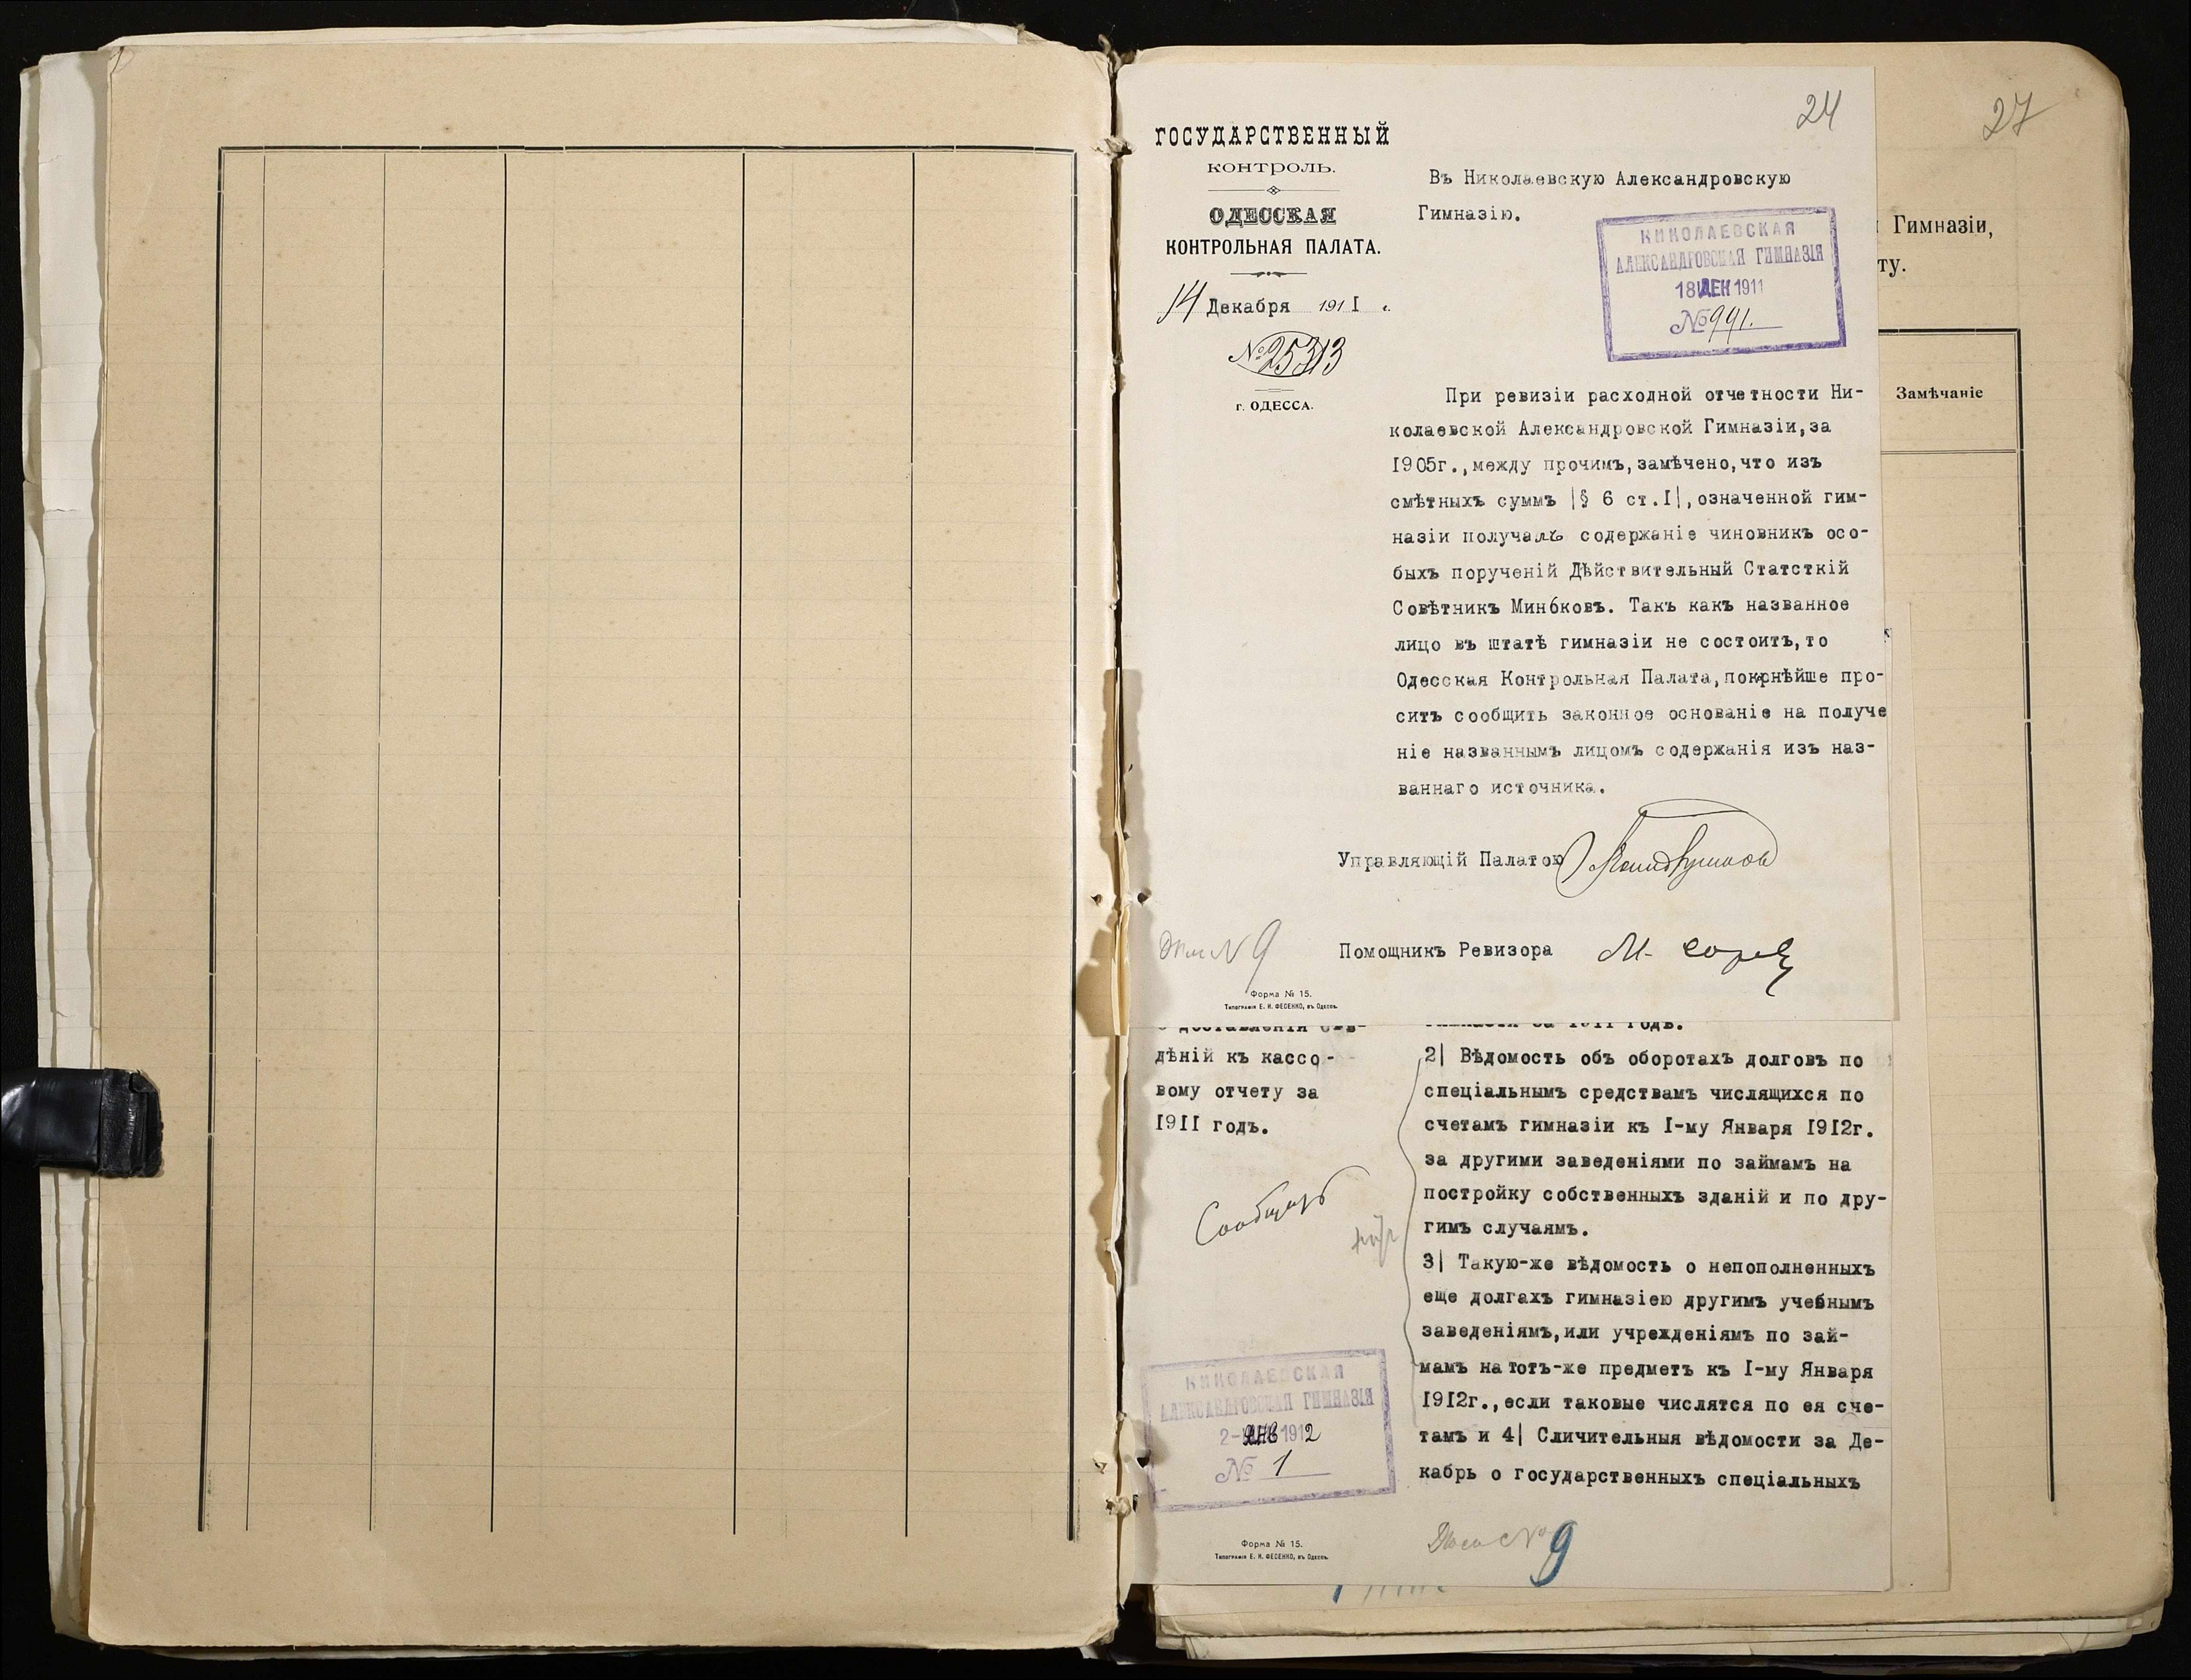 24
27
ГОСУДАРСТВЕННЫЙ
КОНТРОЛЬ.
ОДЕССКАЯ
КОНТРОЛЬНАЯ ПАЛАТА.
14 Декабря 1911 г.
№ 25313
г. ОДЕССА.
Въ Николаевскую Александровскую
Гимназію.
НИКОЛАЕВСКАЯ
АЛЕКСАНДРОВСКАЯ ГИМНАЗІЯ
18 ДЕК 1911
№ 991.
Гимназіи,
ту.
Замѣчаніе
При ревизіи расходной отчетности Ни-
колаевской Александровской Гимназіи,за
1905г.,между прочимъ,замѣчено,что изъ
смѣтныхъ суммъ |§ 6 ст.I|,означенной гим-
назіи получалъ содержаніе чиновникъ осо-
быхъ порученій Дѣйствительный Статсткій
Совѣтникъ Минбковъ. Такъ какъ названное
лицо въ штатѣ гимназіи не состоитъ,то
Одесская Контрольная Палата,покрнѣйше про-
ситъ сообщить законное основаніе на получе
ніе названнымъ лицомъ содержанія изъ наз-
ваннаго источника.
Управляющій Палатою
Помощникъ Ревизора
№ 9
Форма № 15.
Типографія Е. И. ФЕСЕНКО, въ Одессѣ.
о доставленіи свѣ-
дѣній къ кассо-
вому отчету за
1911 годъ.
гимназіи за 1911 годъ.
2| Вѣдомость объ оборотахъ долговъ по
спеціальнымъ средствамъ числящихся по
счетамъ гимназіи къ I-му Января 1912г.
за другими заведеніями по займамъ на
постройку собственныхъ зданій и по дру-
гимъ случаямъ.
3| Такую-же вѣдомость о непополненныхъ
еще долгахъ гимназіею другимъ учебнымъ
заведеніямъ,или учрежденіямъ по зай-
мамъ на тотъ-же предметъ къ I-му Января
1912г.,если таковые числятся по ея сче-
тамъ и 4| Сличительныя вѣдомости за Де-
кабрь о государственныхъ спеціальныхъ
Сообщить
НИКОЛАЕВСКАЯ
АЛЕКСАНДРОВСКАЯ ГИМНАЗІЯ
2- ЯНВ 1912
№ 1
Дѣло № 9
Форма № 15.
Типографія Е. И. ФЕСЕНКО, въ Одессѣ.